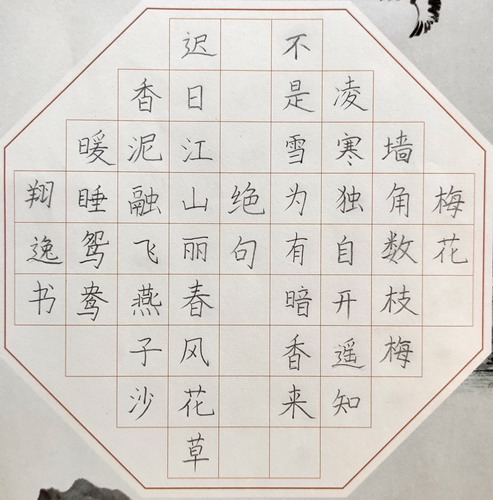 梅花
墙角数枝梅
凌寒独自开遥知
不是雪为有暗香来
绝句
迟日江山丽春风花草
香泥融飞燕子沙
暖睡鸳鸯
翔逸书